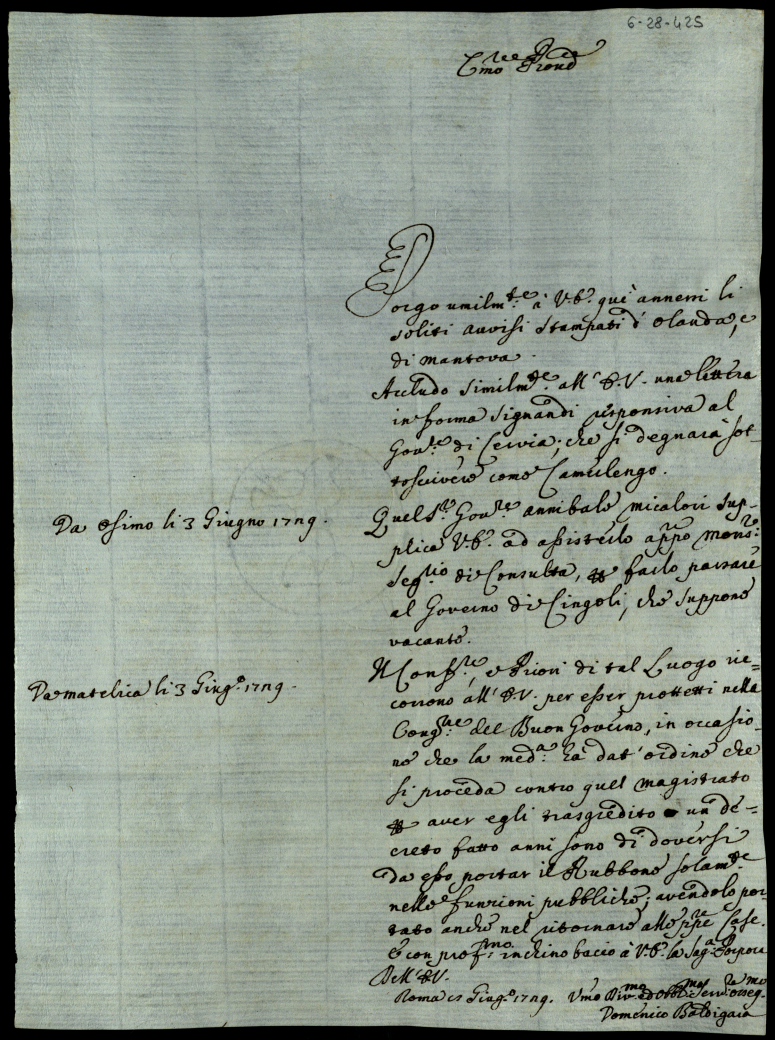 6-28-425
Em.mo e R.mo Prone
Porgo umilm.te à V.E. qui annessi li
soliti avvisi stampati d'Olanda, e
di Mantova.
Accludo similm.te all'E.V. una lettera
in forma signandi responsiva al
Gov.re di Cervia, che si degnarà sot-
toscrivere come Camerlengo.
Da Osimo li 3 Giugno 1729.
Quel S.r Gov.re Annibale Micalori sup-
plica V.E. ad assisterlo app.o Mons.r
Seg.rio di Consulta, farlo passare
al Governo di Cingoli, che suppone
vacante.
Da Matelica li 3 Giug.o 1729.
Il Conf.re, e Priori di tal Luogo ric-
corrono all'E.V. per esser protetti nella
Cong.ne del Buon Governo, in occasio-
ne che la med.a hà dat'ordine che
si proceda contro quel Magistrato
aver egli trasgredito un de-
creto fatto anni sono di doversi
da esso portar il Rubbone solam.te
nelle funzioni pubbliche, avendolo por-
tato anche nel ritornare alle pp.e Case.
E con prof.mo inchino bacio à V.E. la Sag.a Porpora
Dell'E.V.
Roma Giug.o 1729. V.mo Div.mo ed Obbl.mo Serv.re osseq.mo
Domenico Baldigara